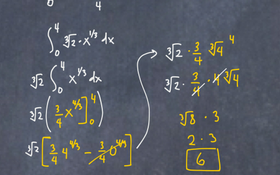 0 4
∫₀⁴ ∛2 · x^(1/3) dx
∛2 ∫₀⁴ x^(1/3) dx
∛2 ( 3/4 x^(4/3) ]₀⁴
∛2 [ 3/4 4^(4/3) − 3/4 0^(4/3) ]
∛2 · 3/4 ∛4⁴
∛2 · 3/4 · 4 ∛4
∛8 · 3
2 · 3
6